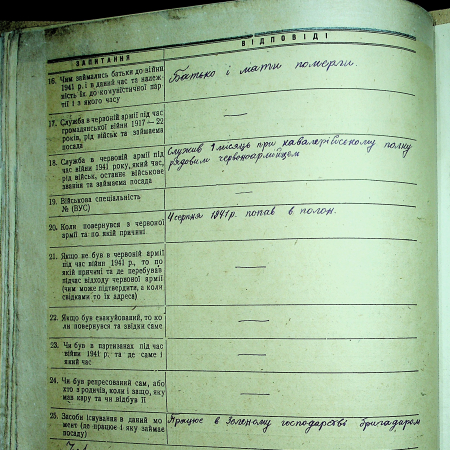 ЗАПИТАННЯ
ВІДПОВІДІ
16. Чим займались батьки до війни
1941 р. і в даний час та належ
ність їх до комуністичної пар
тії і з якого часу
Батько і мати померли.
17. Служба в червоній армії під час
громадянської війни 1917—22
років, рід військ та займаєма
посада
18. Служба в червоній армії під
час війни 1941 року, який час,
рід військ, останнє військове
звання та займаєма посада
Служив 1 місяць при кавалерійському полку
рядовим червоноармійцем
19. Військова спеціальність
№ (ВУС)
20. Коли повернувся з червоної
армії та по якій причині
4 серпня 1941 р. попав в полон.
21. Якщо не був в червоній армії
під час війни 1941 р., то по
якій причині та де перебував
підчас відходу червоної армії
(чим може підтвердити, а коли
свідками то їх адреса)
22. Якщо був евакуйований, то ко
ли повернувся та звідки саме
23. Чи був в партизанах під час
війни 1941 р. та де саме і
який час
24. Чи був репресований сам, або
хто з родичів, коли і защо, яку
мав кару та чи відбув її
25. Засоби існування в даний мо
мент (де працює і яку займає
посаду)
Працює в Зеленому господарстві бригадиром